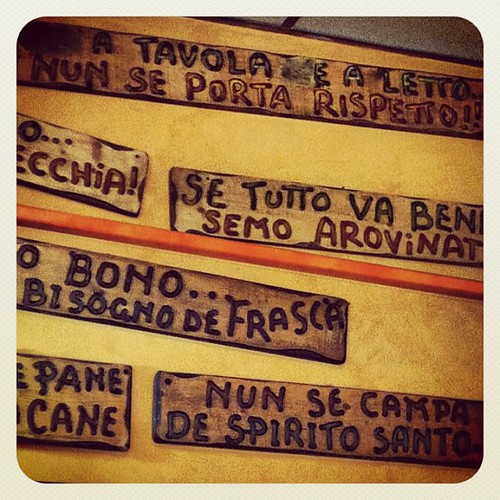 A TAVOLA E A LETTO...
NUN SE PORTA RISPETTO!!
O...
ECCHIA!
SE TUTTO VA BEN
SEMO AROVINAT
O BONO...
BISOGNO DE FRASCA
E PANE
CANE
NUN SE CAMPA
DE SPIRITO SANTO..